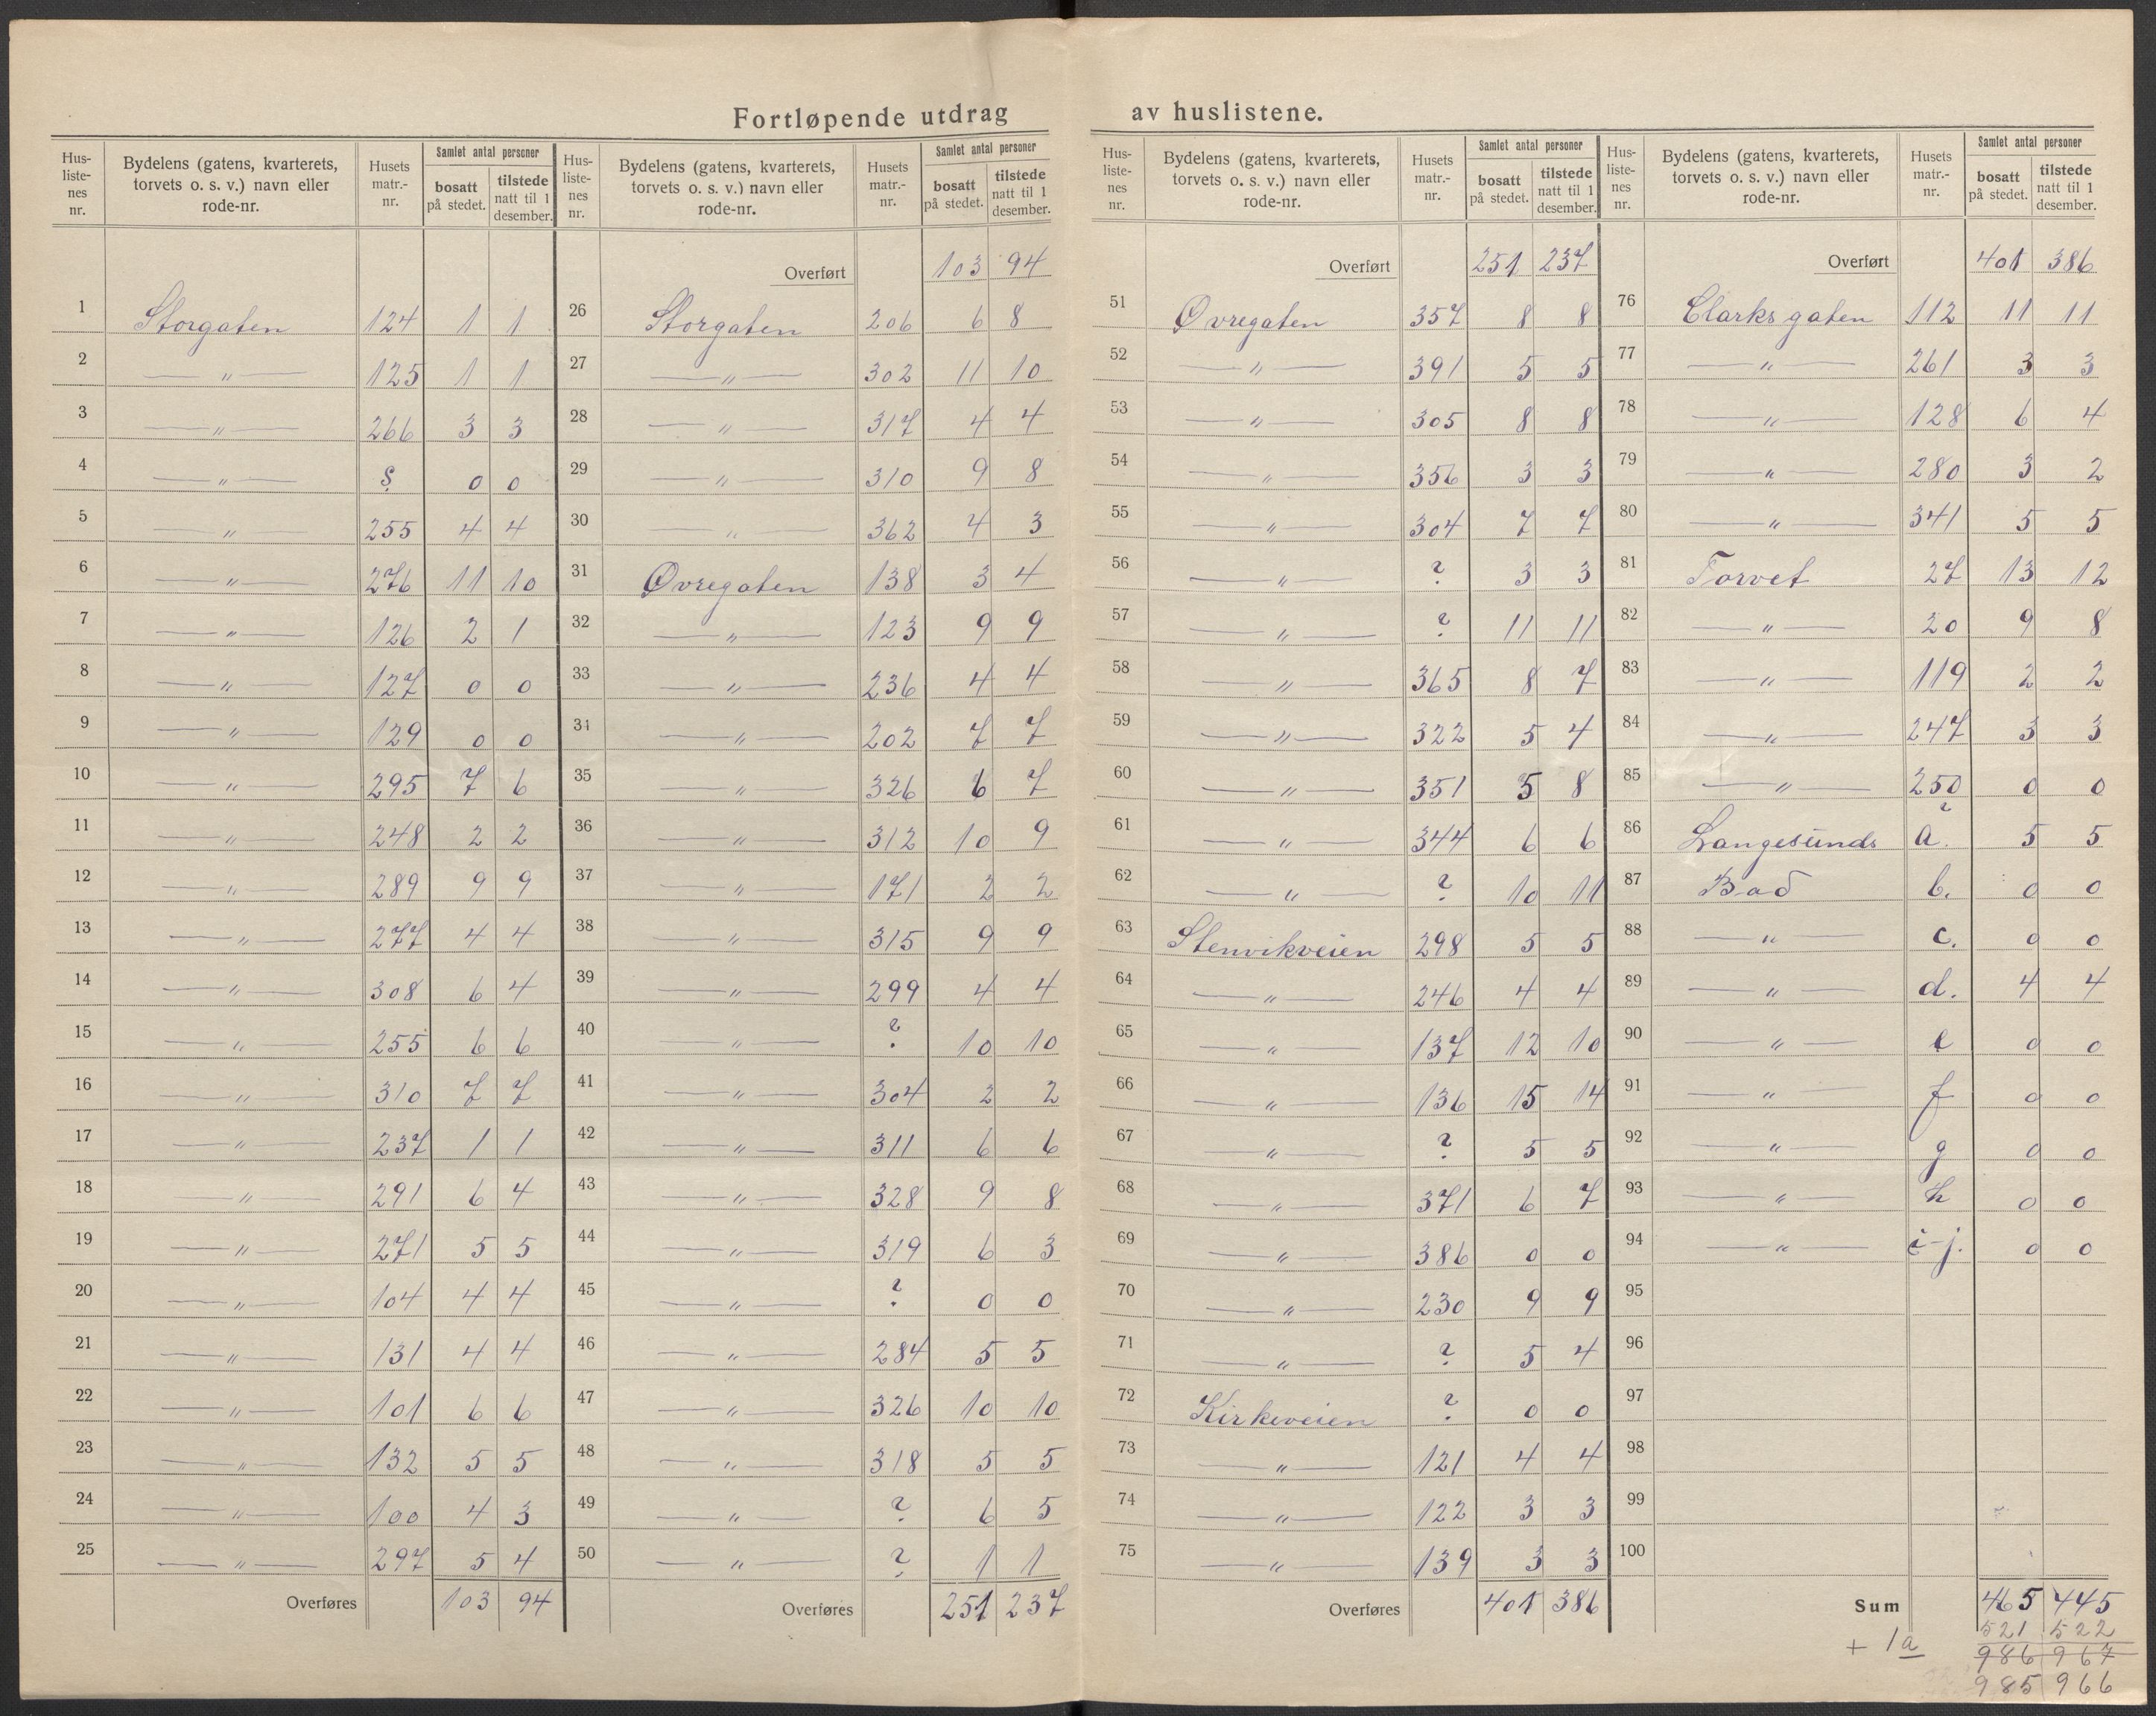 Fortløpende utdrag av huslistene.
Hus-listenes nr. Bydelens (gatens, kvarterets, torvets o. s. v.) navn eller rode-nr. Husets matr.-nr. Samlet antal personer bosatt på stedet. tilstede natt til 1 desember.
1 Storgaten 124 1 1
2 —"— 125 1 1
3 —"— 266 3 3
4 —"— 0 0
5 —"— 255 4 4
6 —"— 276 11 10
7 —"— 126 2 1
8 —"— 127 0 0
9 —"— 129 0 0
10 —"— 295 7 6
11 —"— 248 2 2
12 —"— 289 9 9
13 —"— 277 4 4
14 —"— 308 6 4
15 —"— 255 6 6
16 —"— 310 7 7
17 —"— 237 1 1
18 —"— 291 6 4
19 —"— 271 5 5
20 —"— 104 4 4
21 —"— 131 4 4
22 —"— 101 6 6
23 —"— 132 5 5
24 —"— 100 4 3
25 —"— 297 5 4
Overføres 103 94
Hus-listenes nr. Bydelens (gatens, kvarterets, torvets o. s. v.) navn eller rode-nr. Husets matr.-nr. Samlet antal personer bosatt på stedet. tilstede natt til 1 desember.
Overført 103 94
26 Storgaten 206 6 8
27 —"— 302 11 10
28 —"— 317 4 4
29 —"— 310 9 8
30 —"— 362 4 3
31 Øvregaten 138 3 4
32 —"— 123 9 9
33 —"— 236 4 4
34 —"— 202 7 7
35 —"— 326 6 7
36 —"— 312 10 9
37 —"— 171 2 2
38 —"— 315 9 9
39 —"— 299 4 4
40 —"— ? 10 10
41 —"— 304 2 2
42 —"— 311 6 6
43 —"— 328 9 8
44 —"— 319 6 3
45 —"— ? 0 0
46 —"— 284 5 5
47 —"— 326 10 10
48 —"— 318 5 5
49 —"— ? 6 5
50 —"— ? 1 1
Overføres 251 237
Hus-listenes nr. Bydelens (gatens, kvarterets, torvets o. s. v.) navn eller rode-nr. Husets matr.-nr. Samlet antal personer bosatt på stedet. tilstede natt til 1 desember.
Overført 251 237
51 Øvregaten 357 8 8
52 —"— 391 5 5
53 —"— 305 8 8
54 —"— 356 3 3
55 —"— 304 7 7
56 —"— ? 3 3
57 —"— ? 11 11
58 —"— 365 8 7
59 —"— 322 5 4
60 —"— 351 5 8
61 —"— 344 6 6
62 —"— ? 10 11
63 Stenvikveien 298 5 5
64 —"— 246 4 4
65 —"— 137 12 10
66 —"— 136 15 14
67 —"— ? 5 5
68 —"— 371 6 7
69 —"— 386 0 0
70 —"— 230 9 9
71 —"— ? 5 4
72 Kirkeveien ? 0 0
73 —"— 121 4 4
74 —"— 122 3 3
75 —"— 139 3 3
Overføres 401 386
Hus-listenes nr. Bydelens (gatens, kvarterets, torvets o. s. v.) navn eller rode-nr. Husets matr.-nr. Samlet antal personer bosatt på stedet. tilstede natt til 1 desember.
Overført 401 386
76 Clarks gaten 112 11 11
77 —"— 261 3 3
78 —"— 128 6 4
79 —"— 280 3 2
80 —"— 341 5 5
81 Torvet 27 13 12
82 —"— 20 9 8
83 —"— 119 2 2
84 —"— 247 3 3
85 —"— 250 ? 0 0
86 Langesunds a. 5 5
87 Bad b. 0 0
88 —"— c. 0 0
89 —"— d. 4 4
90 —"— e 0 0
91 —"— f 0 0
92 —"— g 0 0
93 —"— h 0 0
94 —"— i-j. 0 0
95
96
97
98
99
100
Sum 465 445
+ 1a 521 522
986 967
985 966